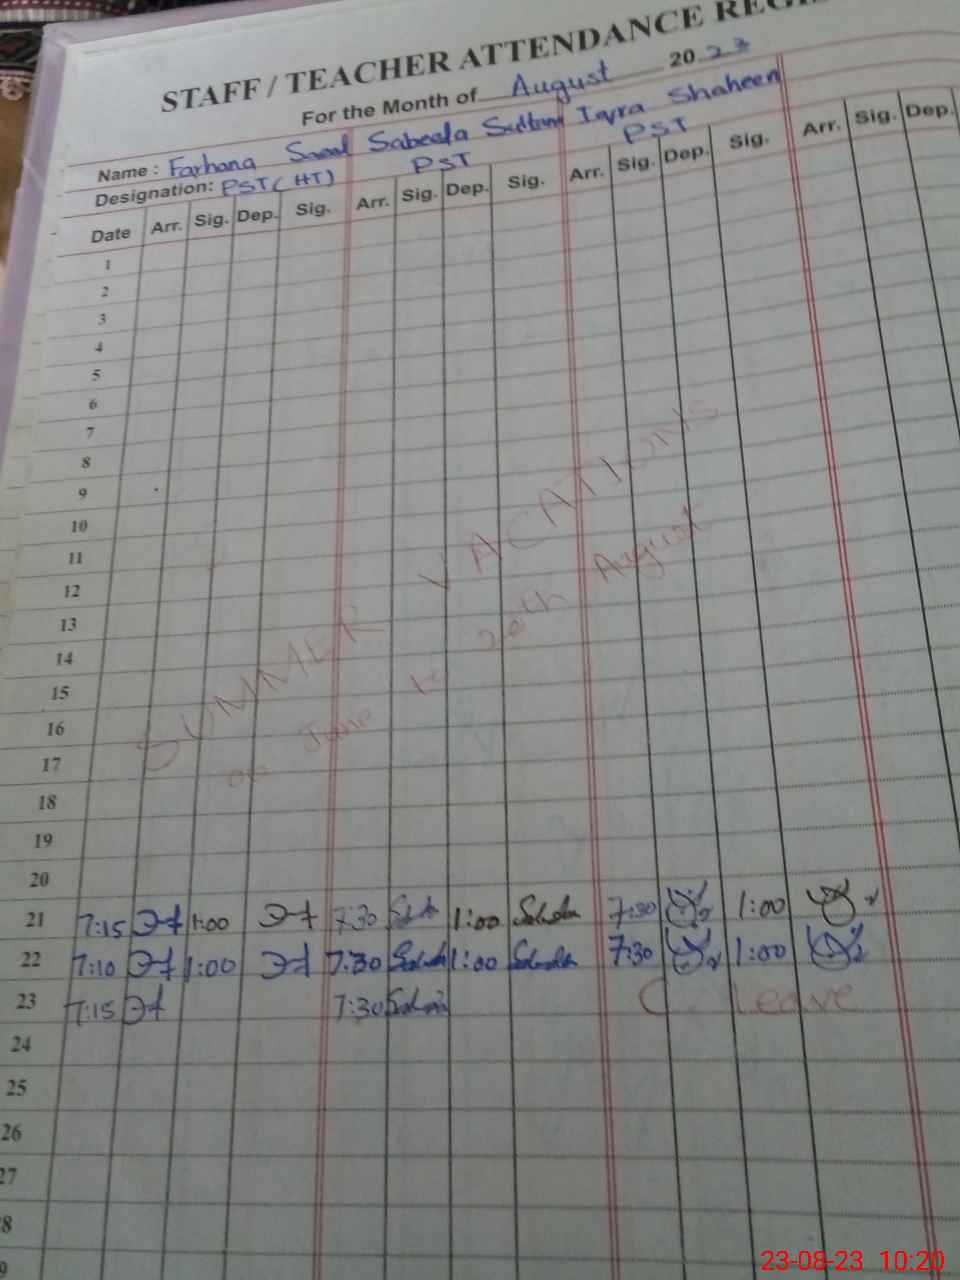 STAFF / TEACHER ATTENDANCE REGIS
For the Month of August 2023
Name : Farhana Saeed Sabeela Sultana Iqra Shaheen
Designation: PST (HT) PST PST
Date Arr. Sig. Dep. Sig. Arr. Sig. Dep. Sig. Arr. Sig. Dep. Sig. Arr. Sig. Dep.
1
2
3
4
5
6
7
8
9
10
11
12
13
14
15
16
17
18
19
20
SUMMER VACATIONS
June to 20th August
21 7:15 1:00 7:30 1:00 7:30 1:00
22 7:10 1:00 7:30 1:00 7:30 1:00
23 7:15 7:30 C Leave
24
25
26
27
8
9
23-08-23 10:20